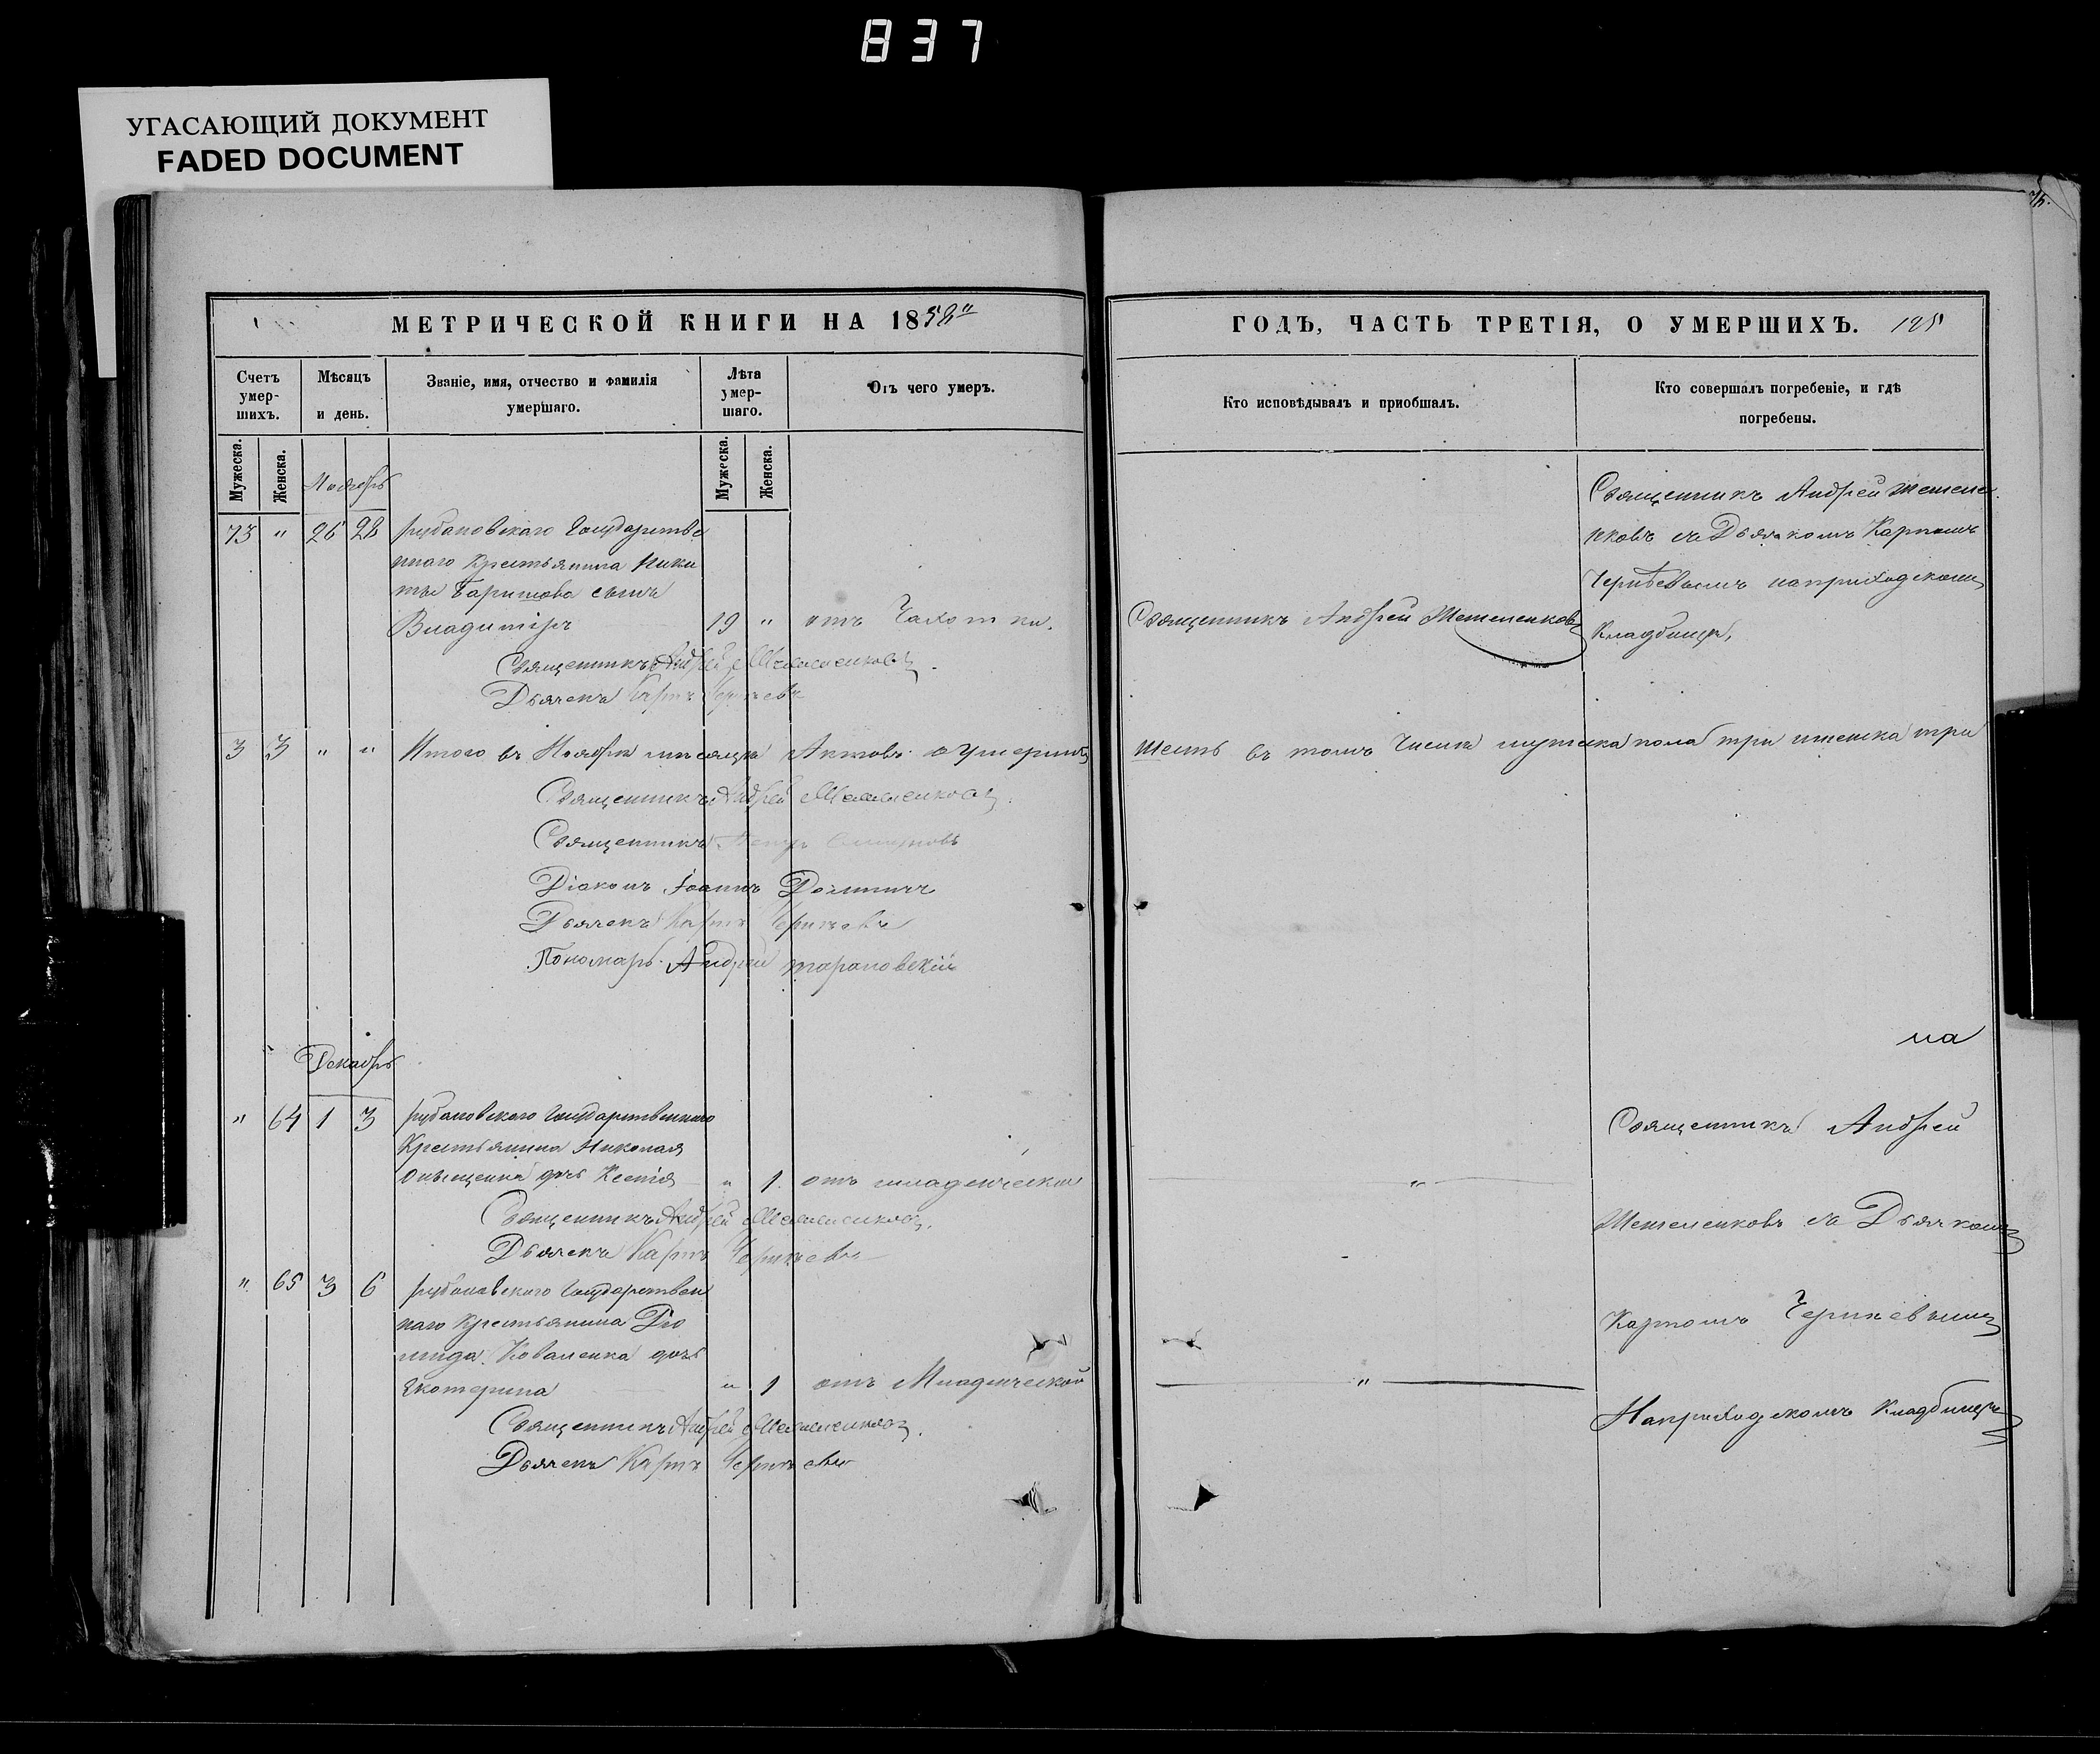 837
УГАСАЮЩИЙ ДОКУМЕНТ
FADED DOCUMENT
МЕТРИЧЕСКОЙ КНИГИ НА 1858й
Счетъ умер-шихъ.
Мѣсяцъ и день.
Званіе, имя, отчество и фамилія умершаго.
Лѣта умер-шаго.
Отъ чего умеръ.
Мужеска.
Женска.
Мужеска.
Женска.
Ноябрь
73 " 26 28 рубановскаго Государстве
ннаго Крестьянина Ники
ты Баришова сынъ
Владиміръ 19 " отъ Чахотки.
Священникъ Андрей
Дьячекъ Карпъ
3 3 " " Итого въ Ноябрѣ мѣсяцѣ Актовъ о Умершихъ
Священникъ Андрей
Священникъ Петръ
Діаконъ Іоаннъ
Дьячекъ Карпъ
Пономарь Андрей Тарановскій
Декабрь
" 64 1 3 рубановскаго Государственнаго
Крестьянина Николая
дочь Ксенія " 1 отъ младенческой
Священникъ Андрей
Дьячекъ Карпъ
" 65 3 6 рубановскаго Государствен
наго Крестьянина Дio
мида Коваленка дочь
Екатерина " 1 отъ Младенческой
Священникъ Андрей
Дьячекъ Карпъ
ГОДЪ, ЧАСТЬ ТРЕТІЯ, О УМЕРШИХЪ. 125
Кто исповѣдывалъ и приобщалъ.
Кто совершалъ погребеніе, и гдѣ погребены.
Священникъ Андрей
съ Дьячкомъ Карпомъ
на приходскомъ
Священникъ Андрей
Кладбищѣ,
шесть въ томъ числѣ мужеска пола три женска три
на
Священникъ Андрей
"
съ Дьячкомъ
Карпомъ
"
На приходскомъ Кладбищѣ